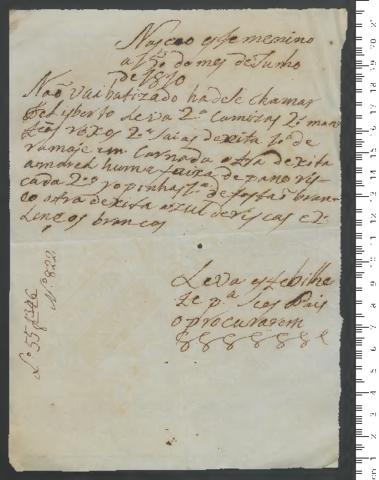 Nasceo este menino
a 12 do mes de Junho
de 1810
Não vai batizado hade se chamar
Felysberto leva 2 camizas 2 man
teos roxos 2 saias de xita 1a de
ramaje em carnada outra de xita
amarela huma faixa de pano ris
cada 2 ropinhas 1a de fustaõ bran
co otra de xita azul de riscas e 2
Lenços brancos
Leva este bilhe
te pa seos Pais
o procurarem
Lo 55 f 346
No 822